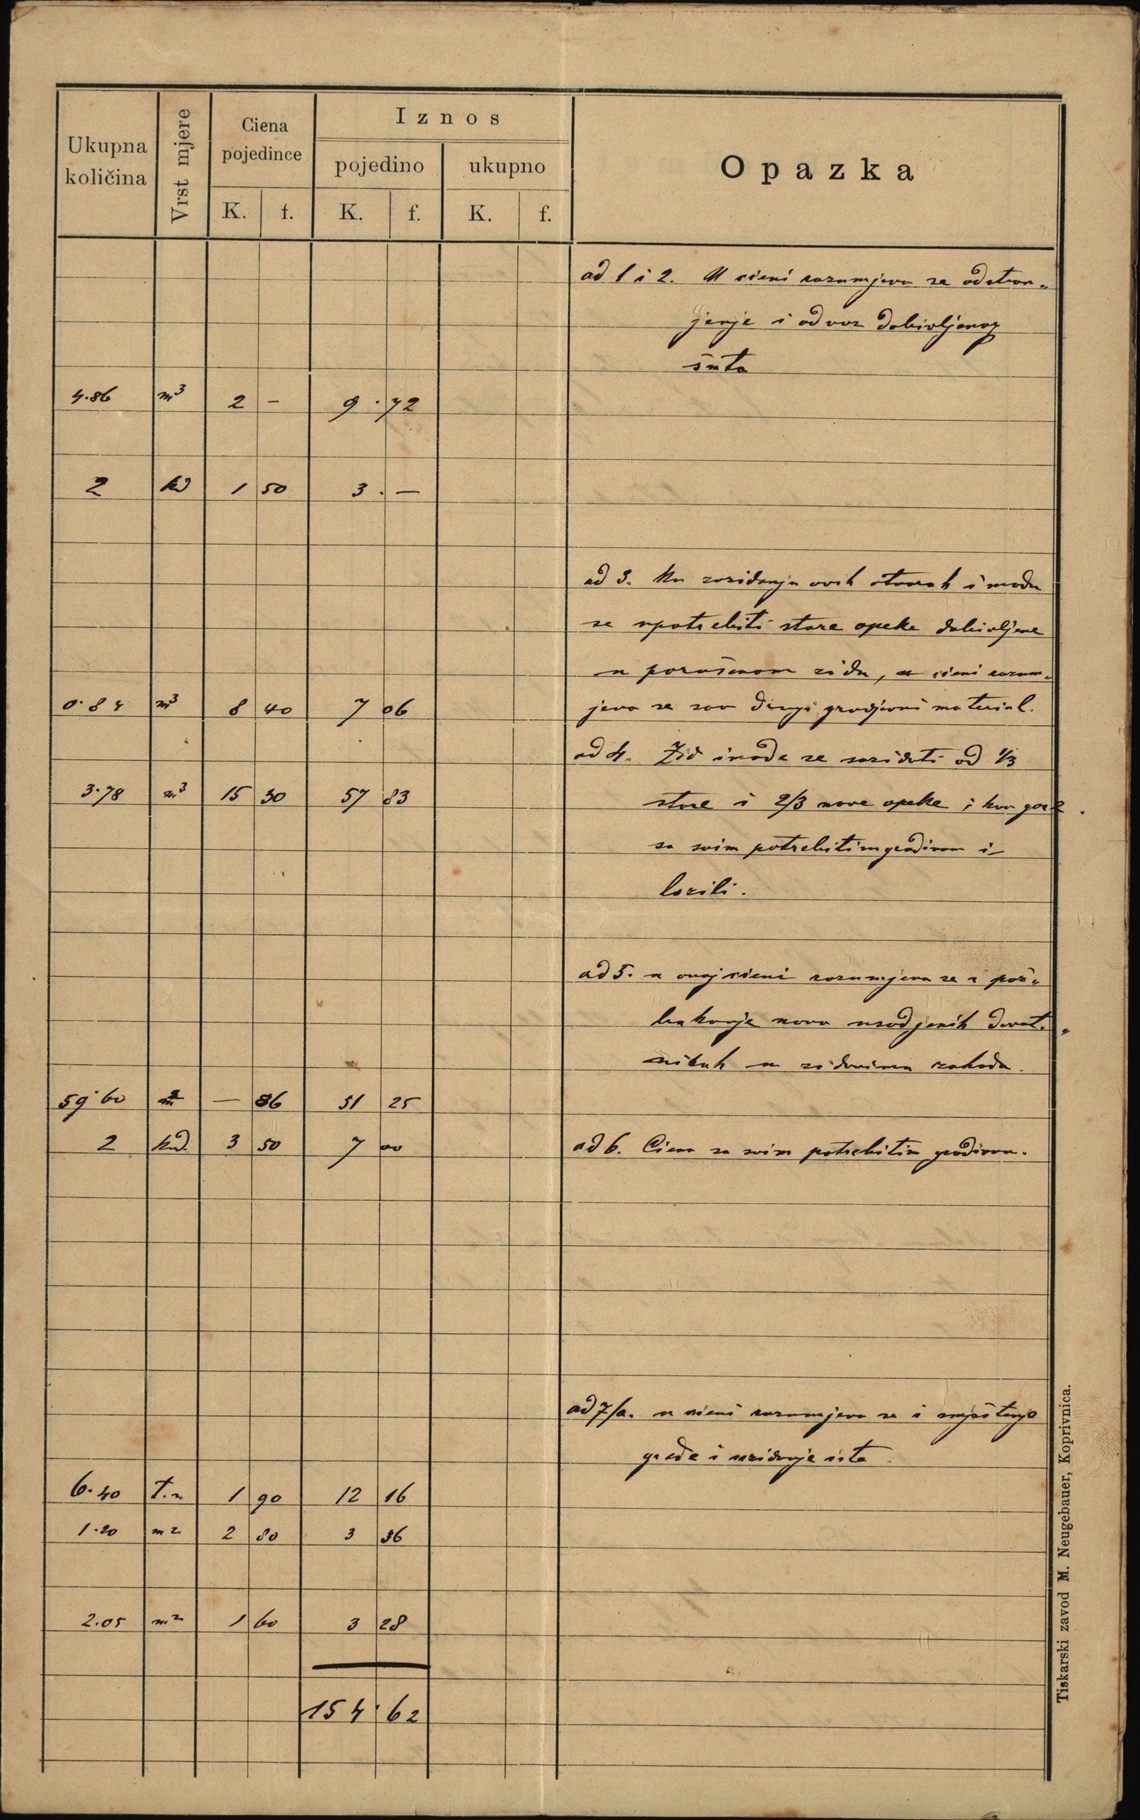 Ukupna količina
Vrst mjere
Ciena pojedince
Iznos
Opazka
pojedino
ukupno
K. f. K. f. K. f.
ad 1 i 2. U cieni razumjeva se odstra-
jenje i odvoz dobivljenog
šuta
4.86 m³ 2 – 9.72
2 kd 1 50 3.—
ad 3. Ku zazidanju ovih otvorah imadu
se upotrebiti stare opeke dobivljene
u porušenom zidu, u cieni razum-
0.84 m³ 8 40 7 06 jeva se sav drugi gradjevni material.
ad 4. Zid imade se sazidati od 1/3
3.78 m³ 15 30 57 83 stare i 2/3 nove opeke, i kao gore
sa svim potrebitim gradivom i
ad 5. u ovoj cieni razumjeva se i
novo usadjenih
u zidovima zahoda.
59.60 m² — 86 51 25
2 kd. 3 50 7 00 ad 6. Ciena sa svim potrebitim gradivom.
ad 7/a. u cieni razumjeva se i smještenje
građe i uzidanje iste.
6.40 t.m 1 90 12 16
1.20 m² 2 80 3 36
2.05 m² 1 60 3 28
154.62
Tiskarski zavod M. Neugebauer, Koprivnica.